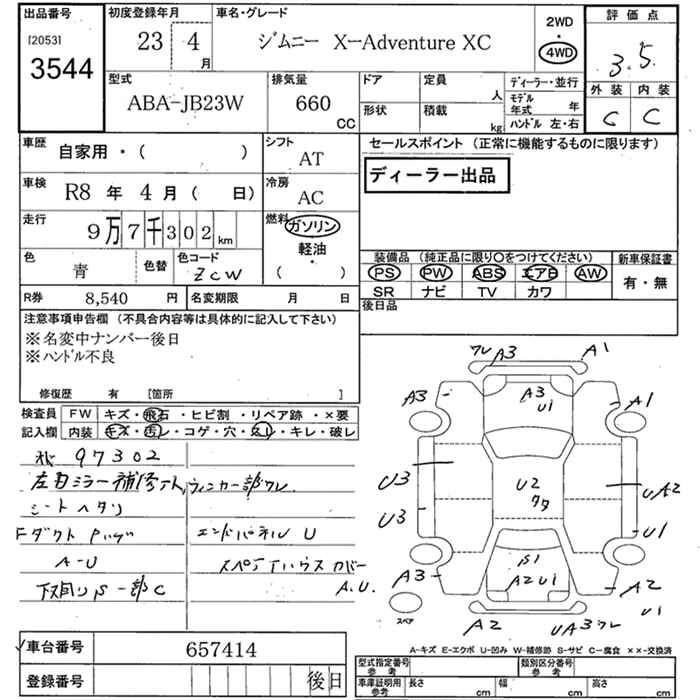 出品番号
[2053]
3544
初度登録年月
23年 4月
車名・グレード
ジムニー X-Adventure XC
2WD
・
4WD
評価点
3.5
外装 内装
C C
型式
ABA-JB23W
排気量
660
CC
ドア
形状
定員
人
積載
kg
ディーラー・並行
モデル年式 年
ハンドル 左・右
車歴
自家用・( )
シフト
AT
車検
R8 年 4 月 ( 日)
冷房
AC
走行
9万7千302km
燃料
ガソリン
・
軽油
( )
色
青
色替
色コード
ZCW
R券 8,540 円
名変期限 月 日
セールスポイント (正常に機能するものに限ります)
ディーラー出品
装備品 (純正品に限り○をつけてください)
PS PW ABS エアB AW
SR ナビ TV カワ
新車保証書
有・無
後日品
注意事項申告欄 (不具合内容等は具体的に記入して下さい)
※名変中ナンバー後日
※ハンドル不良
修復歴 有 [箇所 ]
検査員
記入欄
FW キズ・飛石・ヒビ割・リペア跡・×要
内装 キズ・汚レ・コゲ・穴・スレ・キレ・破レ
97302
左右ミラー補修アト ウィンカー部ワレ
シートヘタリ
Fダクト
エンドパネル U
A-U
スペアタイハウスカバー
A.U.
下回りS一部C
ワレ A3 A1
A3
A3
U1
A1
U3
U2
UA2
U3
U1
S1
A3
A2 U1
A2
U1
スペア
A2
UA3ワレ
A-キズ E-エクボ U-凹み W-補修跡 S-サビ C-腐食 ××-交換済
車台番号
657414
登録番号
後日
型式指定番号
参考
類別区分番号
参考
車庫証明用
参考
長さ cm
幅 cm
高さ cm